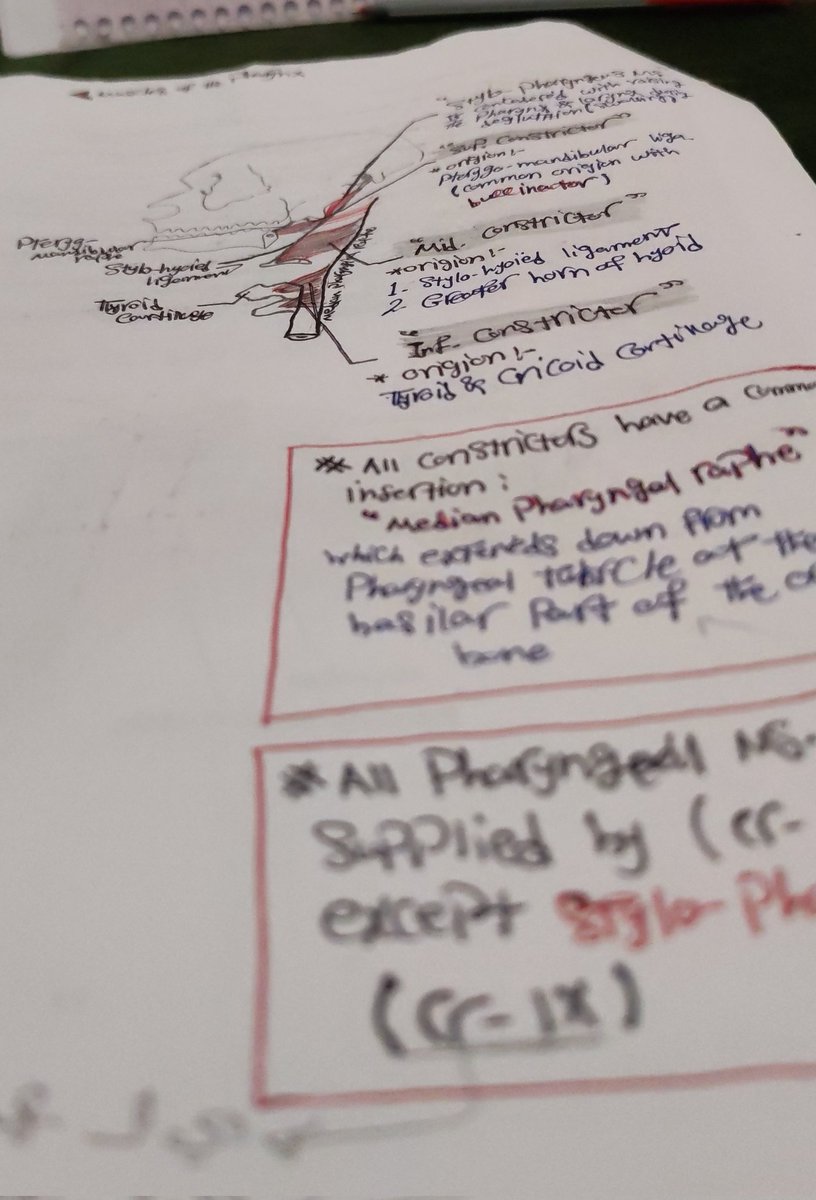 muscles of the Pharynx
"Stylo-Pharyngeus Ms
Pharynx & larynx
deglutition
"Sup. Constrictor"
* origion:-
Pterygo-mandibular liga.
(common origion with
buccinactor)
Pterygo
mandibular
raphe
Stylo-hyoid
ligament
Tyroid
Courtilage
Median Pharyngeal
"Mid. Constrictor"
* origion:-
1- Stylo-hyoied ligament
2- Greater horn of hyoid
"Inf. Constrictor"
* origion:-
Tyroid & Cricoid Cartinage
** All Constrictors have a Commo
insertion:
"Median Pharyngal raphe"
which extends down from
Pharyngeal tubrcle at the
basilar Part of the
bone
* All Pharyngeal Ms.
Supplied by (cr-
except Stylo-Pha
(cr-IX)